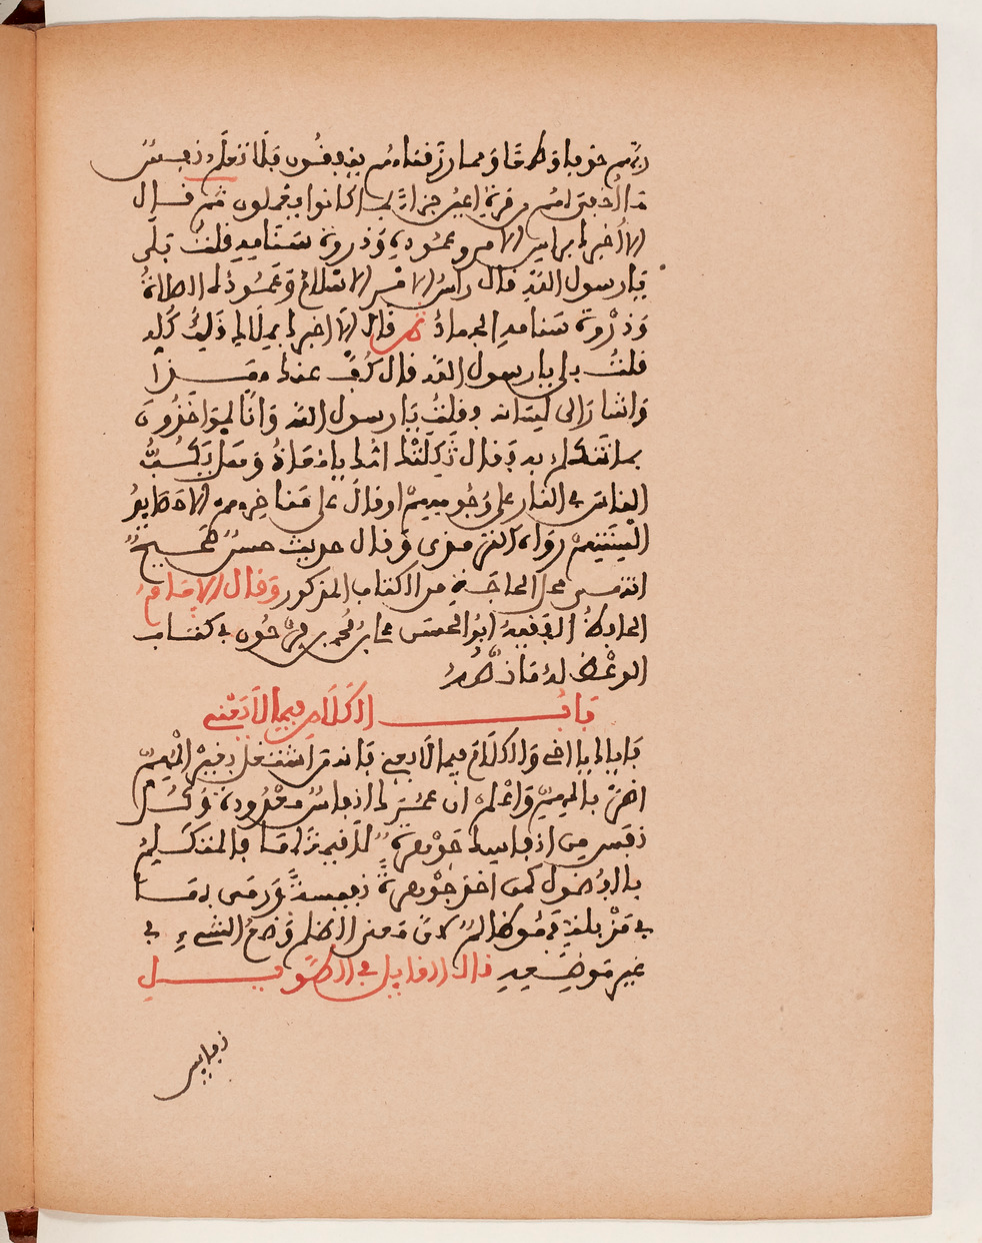 ربهم خوفا وطمعا ومما رزقناهم ينفقون فلا تعلم نفس
ما أخفي لهم من قرة اعين جزاء بما كانوا يعملون ثم قال
الا أخبرك براس الامر وعموده وذروة سنامه قلت بلى
يارسول الله قال راس الامر الاسلام وعموده الصلاة
وذروة سنامه الجهاد ثم قال الا اخبرك بملاك ذلك كله
قلت بلى يارسول الله قال كف عنك هذا
واشار الى لسانه وقلت يا رسول الله وانا لمواخذون
بما نتكلم به فقال ثكلتك امك يا معاذ وهل يكب
الناس في النار على وجوههم او قال على مناخرهم الا حصايد
السنتهم رواه الترمذي وقال حديث حسن صحيح
انتهى محل الحاجة من الكتاب المذكور وقال الامام
الحافظ الفقيه ابو الحسن بن فرحون في كتاب
الوعظ له ما نصه
باب الكلام فيما لا يعني
فاياك يا اخي والكلام فيما لا يعني فانه من اشتغل بغير المهم
اضر بالمهم واعلم ان عمرك انفاس معدودة وكل
نفس من انفاسك جوهرة لا قيمة لها فالمتكلم
بالفضول كمن اخذ جوهرة نفيسة ورمى بها
في مزبلة فهو ظالم لان معنى الظلم وضع الشيء في
غير موضعه قال القايل في الطويل
نفايس